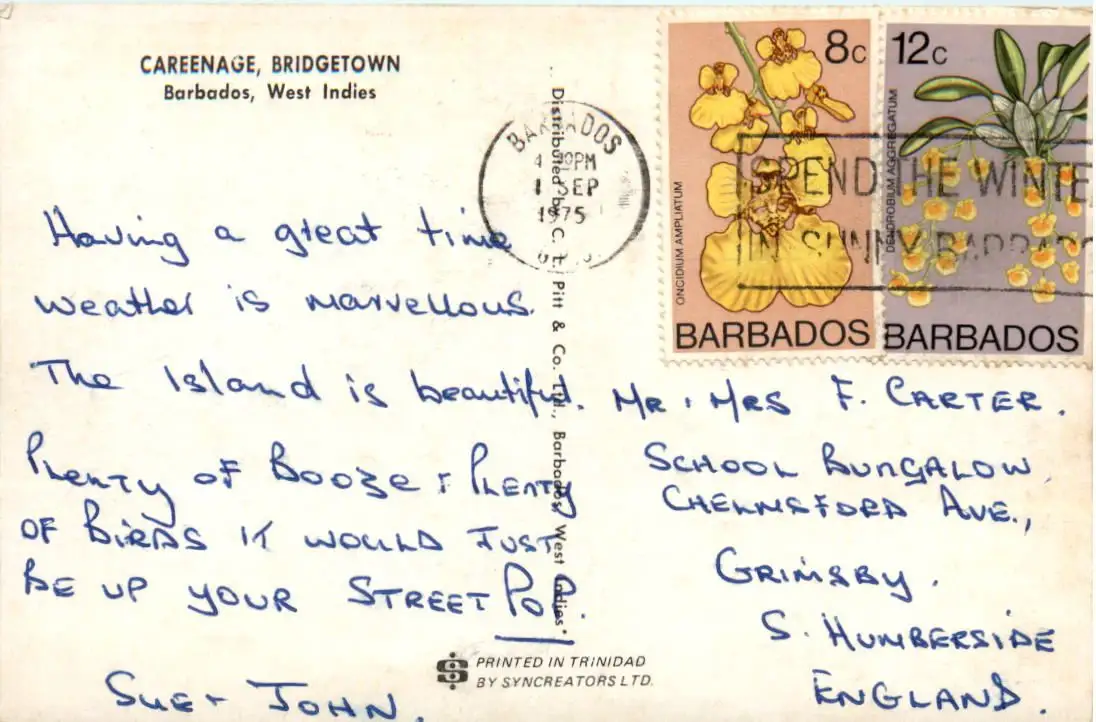 CAREENAGE, BRIDGETOWN
Barbados, West Indies
Having a great time
weather is marvellous.
The Island is beautiful.
Plenty of Booze & Plenty
of Birds it would just
be up your street Pop.
Sue & John.
Distributed by C. L. Pitt & Co. Ltd., Barbados, West Indies
PRINTED IN TRINIDAD
BY SYNCREATORS LTD.
BARBADOS
PM
1 SEP
1975
8c
ONCIDIUM AMPLIATUM
BARBADOS
12c
DENDROBIUM AGGREGATUM
BARBADOS
SPEND THE WINTE
IN SUNNY BARBADO
Mr. Mrs F. Carter.
School Bungalow,
Chelmsford Ave.,
Grimsby.
S. Humberside
England.